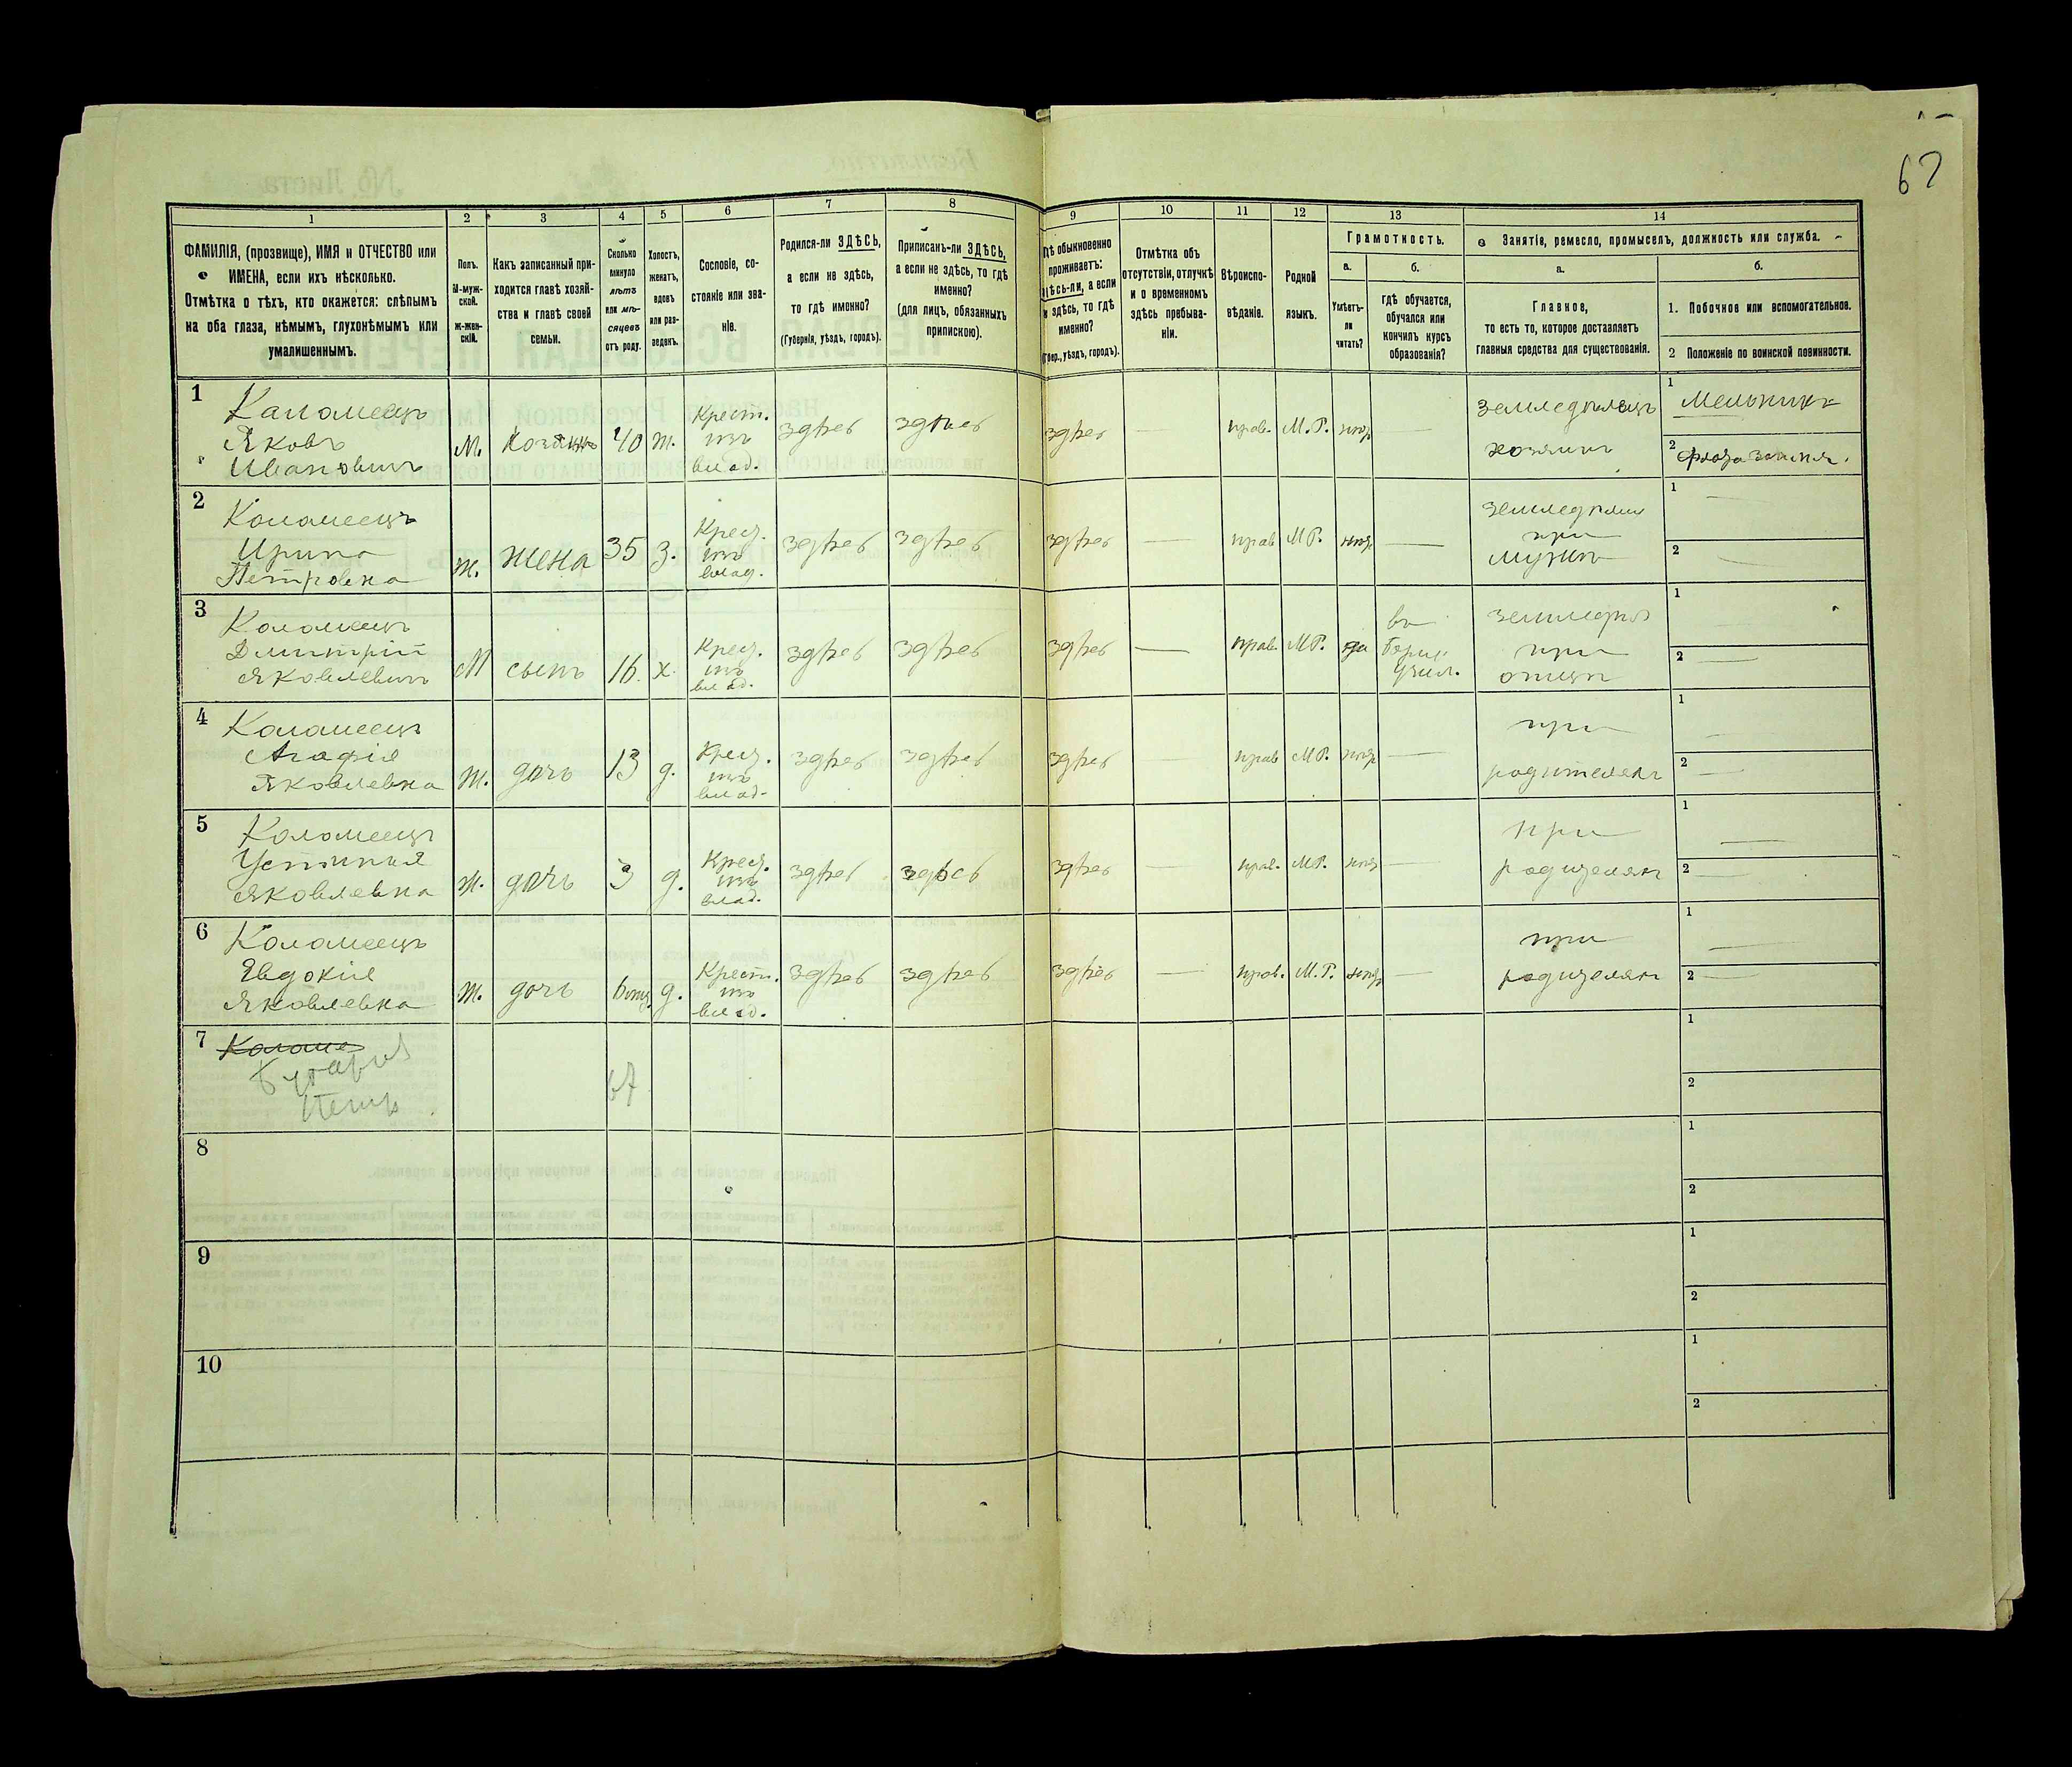 62
1 2 3 4 5 6 7 8 9 10 11 12 13 14
ФАМИЛІЯ, (прозвище), ИМЯ и ОТЧЕСТВО или
ИМЕНА, если ихъ нѣсколько.
Отмѣтка о тѣхъ, кто окажется: слѣпымъ
на оба глаза, нѣмымъ, глухонѣмымъ или
умалишеннымъ.
Полъ.
М-муж-
ской.
ж-жен-
скій.
Какъ записанный при-
ходится главѣ хозяй-
ства и главѣ своей
семьи.
Сколько
минуло
лѣтъ
или мѣ-
сяцевъ
отъ роду.
Холостъ,
женатъ,
вдовъ
или раз-
веденъ.
Сословіе, со-
стояніе или зва-
ніе.
Родился-ли ЗДѢСЬ,
а если не здѣсь,
то гдѣ именно?
(Губернія, уѣздъ, городъ).
Приписанъ-ли ЗДѢСЬ,
а если не здѣсь, то гдѣ
именно?
(для лицъ, обязанныхъ
припискою).
обыкновенно
проживаетъ:
а если
здѣсь, то гдѣ
именно?
уѣздъ, городъ).
Отмѣтка объ
отсутствіи, отлучкѣ
и о временномъ
здѣсь пребыва-
ніи.
Вѣроиспо-
вѣданіе.
Родной
языкъ.
Грамотность.
а.
Умѣетъ-
ли
читать?
б.
гдѣ обучается,
обучался или
кончилъ курсъ
образованія?
Занятіе, ремесло, промыселъ, должность или служба.
а.
Главное,
то есть то, которое доставляетъ
главныя средства для существованія.
б.
1. Побочное или вспомогательное.
2 Положеніе по воинской повинности.
1
Каламеецъ
Яковъ
Ивановичъ
М. Хозяинъ 40 ж.
Крест.
изъ
влад.
здѣсь здѣсь здѣсь — прав. М.Р. —
земледѣлецъ
хозяинъ
1 Мельникъ
2
2
Коломеецъ
Ирина
Петровна
ж. жена 35 з.
Крест.
изъ
влад.
здѣсь здѣсь здѣсь — прав М.Р. —
при
мужѣ
1 —
2 —
3
Коломеецъ
Дмитрій
Яковлевичъ
М сынъ 16. х.
Крест.
изъ
влад.
здѣсь здѣсь здѣсь — прав. М.Р. да
въ
учил.
при
отцѣ
1 —
2 —
4
Коломеецъ
Агафія
Яковлевна
ж. дочь 13 д.
Крест.
изъ
влад.
здѣсь здѣсь здѣсь — прав М.Р. —
при
родителяхъ
1 —
2 —
5
Коломеецъ
Устинья
Яковлевна
ж. дочь 3 д.
Крест.
изъ
влад.
здѣсь здѣсь здѣсь — прав. М.Р. —
при
родителяхъ
1 —
2 —
6
Коломеецъ
Явдокія
Яковлевна
ж. дочь д.
Крест.
изъ
влад.
здѣсь здѣсь здѣсь — прав. М.Р. —
при
родителяхъ
1 —
2 —
7
Коломе
Петръ
67
1
2
8
1
2
9
1
2
10
1
2